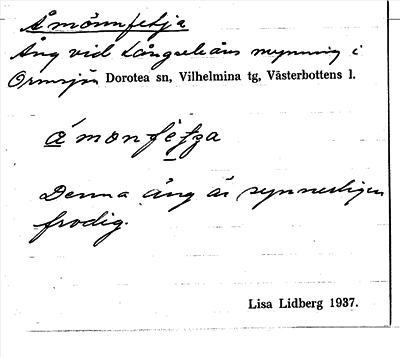 Åmönnfetja
Äng vid Långseleåns mynning i
Ormsjön Dorotea sn, Vilhelmina tg, Västerbottens l.
Denna äng är synnerligen
frodig.
Lisa Lidberg 1937.